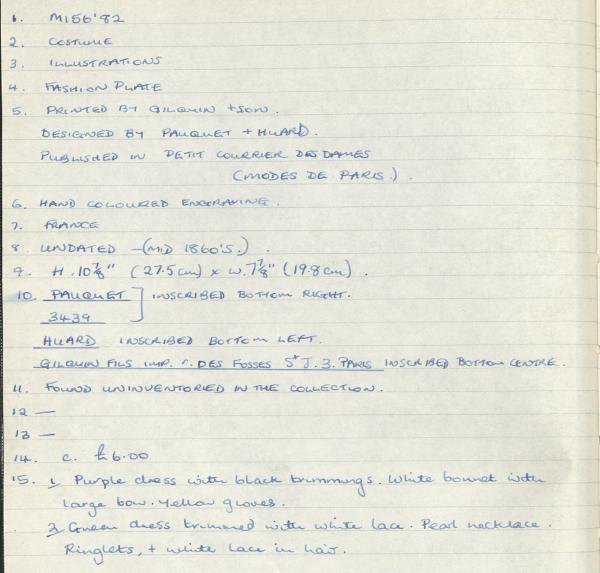 1. M156'82
2. COSTUME
3. ILLUSTRATIONS
4. FASHION PLATE
5. PRINTED BY GILQUIN + SON.
DESIGNED BY PAUQUET + HUARD.
PUBLISHED IN PETIT COURRIER DES DAMES
(MODES DE PARIS.).
6. HAND COLOURED ENGRAVING.
7. FRANCE
8. UNDATED - (MID 1860'S.).
9. H. 10 7/8" (27.5 cm) x W. 7 7/8" (19.8 cm).
10. PAUQUET ] INSCRIBED BOTTOM RIGHT.
3439
HUARD INSCRIBED BOTTOM LEFT.
GILQUIN FILS IMP. r. DES FOSSES St J. 3. PARIS INSCRIBED BOTTOM CENTRE.
11. FOUND UNINVENTORIED IN THE COLLECTION.
12 —
13 —
14. c. £6.00
15. 1 Purple dress with black trimmings. White bonnet with
large bow. Yellow gloves.
2 Green dress trimmed with white lace. Pearl necklace.
Ringlets, + white lace in hair.